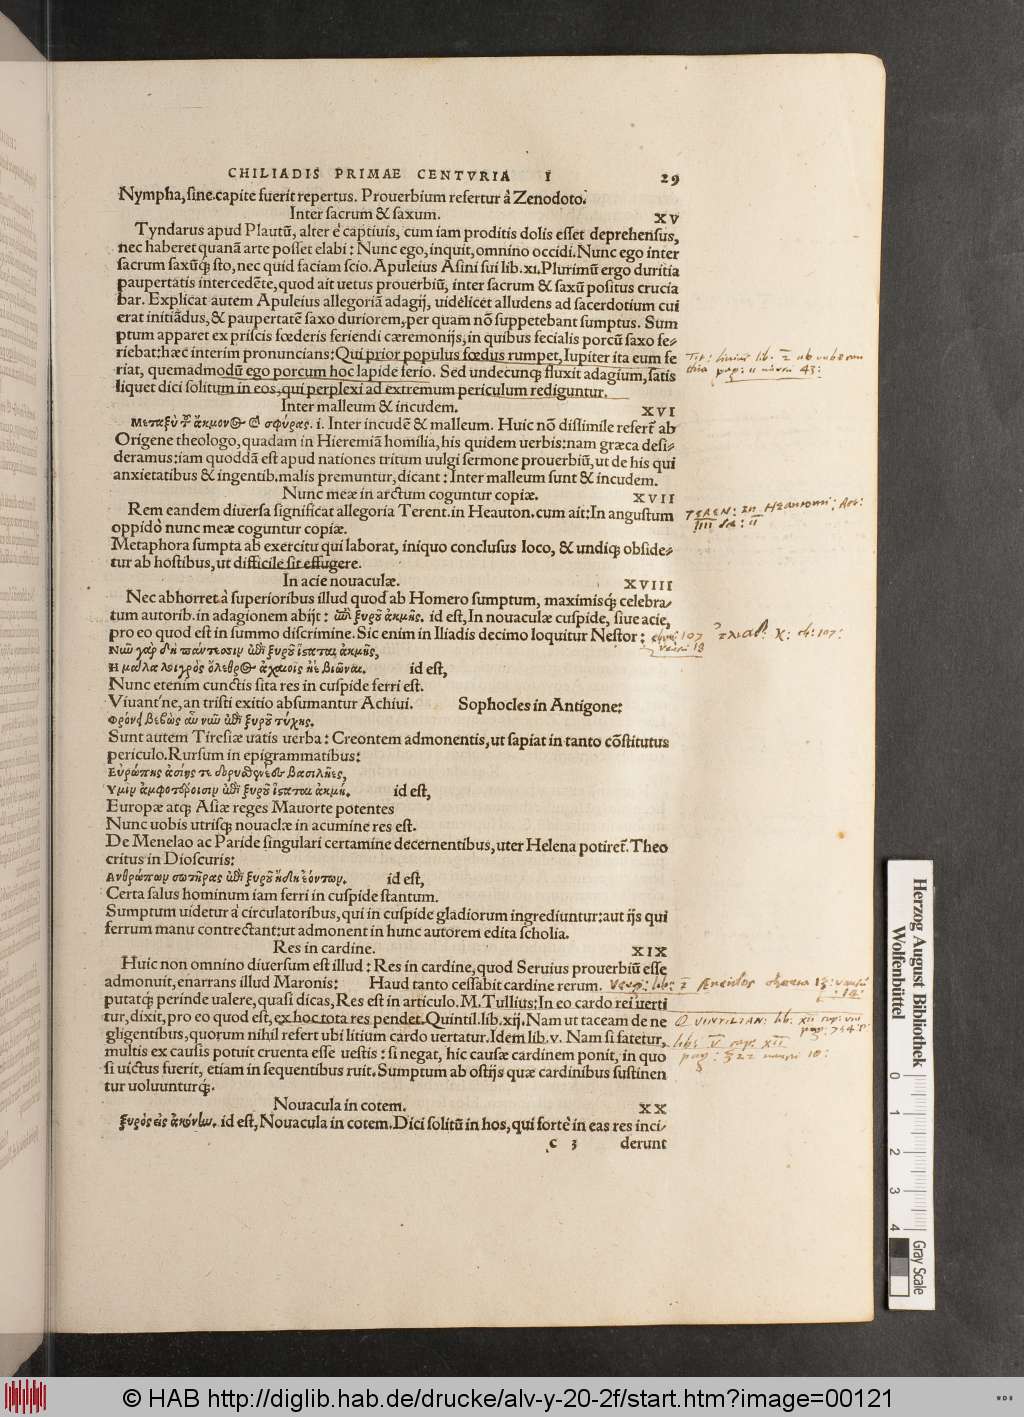 CHILIADIS PRIMAE CENTVRIA I 29
Nympha, sine capite fuerit repertus. Prouerbium refertur à Zenodoto.
Inter sacrum & saxum. XV
Tyndarus apud Plautũ, alter è captiuis, cum iam proditis dolis esset deprehensus,
nec haberet quanã arte posset elabi: Nunc ego, inquit, omnino occidi. Nunc ego inter
sacrum saxũqȝ sto, nec quid faciam scio. Apuleius Asini sui lib. xi. Plurimũ ergo duritia
paupertatis intercedẽte, quod ait uetus prouerbiũ, inter sacrum & saxũ positus crucia
bar. Explicat autem Apuleius allegoriã adagij, uidelicet alludens ad sacerdotium cui
erat initiãdus, & paupertatẽ saxo duriorem, per quam nõ suppetebant sumptus. Sum
ptum apparet ex priscis fœderis feriendi cæremonijs, in quibus fecialis porcũ saxo fe-
riebat: hæc interim pronuncians: Qui prior populus fœdus rumpet, Iupiter ita eum fe
riat, quemadmodũ ego porcum hoc lapide ferio. Sed undecunqȝ fluxit adagium, satis
liquet dici solitum in eos, qui perplexi ad extremum periculum rediguntur.
Tit: Liuius lib.
pag: 11 43:
Inter malleum & incudem. XVI
Μεταξὺ τῦ ἄκμονος καὶ σφύρας. i. Inter incudẽ & malleum. Huic nõ dissimile refert̃ ab
Origene theologo, quadam in Hieremiã homilia, his quidem uerbis: nam græca desi-
deramus: iam quoddã est apud nationes tritum uulgi sermone prouerbiũ, ut de his qui
anxietatibus & ingentib. malis premuntur, dicant: Inter malleum sunt & incudem.
Nunc meæ in arctum coguntur copiæ. XVII
Rem eandem diuersa significat allegoria Terent. in Heauton. cum ait: In angustum
oppidò nunc meæ coguntur copiæ.
Metaphora sumpta ab exercitu qui laborat, iniquo conclusus loco, & undiqȝ obside-
tur ab hostibus, ut difficile sit effugere.
IIII sce: II
In acie nouaculæ. XVIII
Nec abhorret à superioribus illud quod ab Homero sumptum, maximisqȝ celebra-
tum autorib. in adagionem abijt: ἐπὶ ξυροῦ ἀκμῆς. id est, In nouaculæ cuspide, siue acie,
pro eo quod est in summo discrimine. Sic enim in Iliadis decimo loquitur Nestor:
107 ἰλιαδ: χ: 107:
Νυῦ γὰρ δὴ πάντεσσιν ἐπὶ ξυροῦ ἵσταται ἀκμῆς,
Ἢ μάλα λυγρὸς ὄλεθρος ἀχαιοῖς ἠὲ βιῶναι. id est,
Nunc etenim cunctis sita res in cuspide ferri est.
Viuant'ne, an tristi exitio absumantur Achiui. Sophocles in Antigone:
Φρόνει βεβὼς αὖ νυῦ ἐπὶ ξυροῦ τύχης.
Sunt autem Tiresiæ uatis uerba: Creontem admonentis, ut sapiat in tanto cõstitutus
periculo. Rursum in epigrammatibus:
Εὐρώπης ἀσίης τε δορυσθενέες βασιλῆες,
Υμιν ἀμφοτέροισιν ἐπὶ ξυροῦ ἵσταται ἀκμή. id est,
Europæ atqȝ Asiæ reges Mauorte potentes
Nunc uobis utrisqȝ nouaclæ in acumine res est.
De Menelao ac Paride singulari certamine decernentibus, uter Helena potiret̃. Theo
critus in Dioscuris:
Ανθρώπων σωτῆρας ἐπὶ ξυροῦ ἤδη ἐόντων. id est,
Certa salus hominum iam ferri in cuspide stantum.
Sumptum uidetur à circulatoribus, qui in cuspide gladiorum ingrediuntur: aut ijs qui
ferrum manu contrectant: ut admonent in hunc autorem edita scholia.
Res in cardine. XIX
Huic non omnino diuersum est illud: Res in cardine, quod Seruius prouerbiũ esse
admonuit, enarrans illud Maronis: Haud tanto cessabit cardine rerum.
putatqȝ perinde ualere, quasi dicas, Res est in articulo. M. Tullius: In eo cardo rei uerti
tur, dixit, pro eo quod est, ex hoc tota res pendet. Quintil. lib. xij. Nam ut taceam de ne
gligentibus, quorum nihil refert ubi litium cardo uertatur. Idem lib. v. Nam si fatetur,
multis ex causis potuit cruenta esse uestis: si negat, hic causæ cardinem ponit, in quo
si uictus fuerit, etiam in sequentibus ruit. Sumptum ab ostijs quæ cardinibus sustinen
tur uoluunturqȝ.
Verg: lib: Æneidos
Q VINTILIAN: lib. XII cap: VIII
pag: 754
lib: V cap: XII
pag: 322 10:
Nouacula in cotem. XX
Ξυρὸς εἰς ἀκόνην. id est, Nouacula in cotem. Dici solitũ in hos, qui fortè in eas res inci-
c 3 derunt
Herzog August Bibliothek
Wolfenbüttel
0 1 2 3 4
Gray Scale
© HAB http://diglib.hab.de/drucke/alv-y-20-2f/start.htm?image=00121
WDB